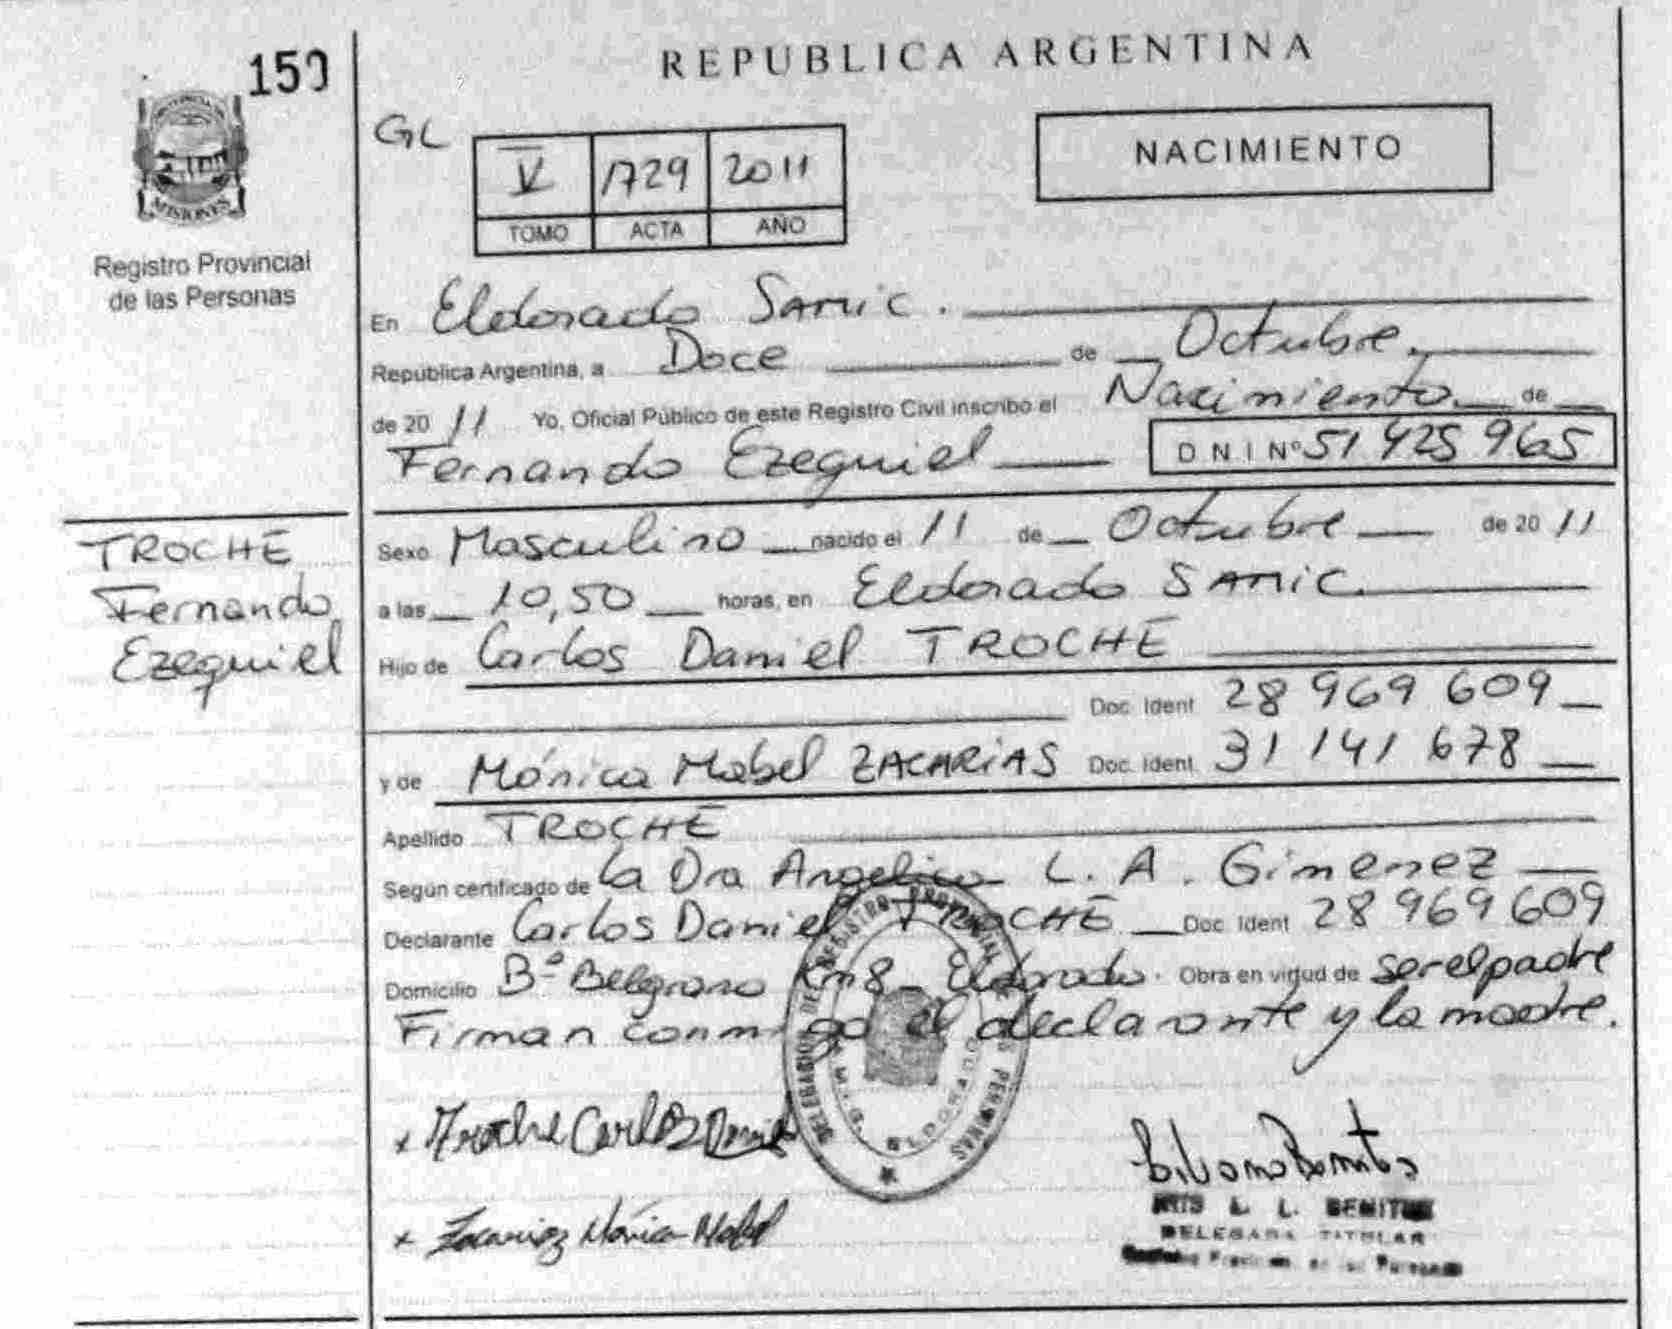 150
REPUBLICA ARGENTINA
MISIONES
Registro Provincial
de las Personas
GL
V 1729 2011
TOMO ACTA AÑO
NACIMIENTO
En Eldorado SAMIC.
República Argentina, a Doce de Octubre
de 20 11 Yo, Oficial Público de este Registro Civil inscribo el Nacimiento de
Fernando Ezequiel D N I Nº 51 425 965
TROCHE
Fernando
Ezequiel
Sexo Masculino nacido el 11 de Octubre de 20 11
a las 10,50 horas, en Eldorado SAMIC.
Hijo de Carlos Daniel TROCHE
Doc. Ident 28 969 609
y de Mónica Mabel ZACARIAS Doc. Ident. 31 141 678
Apellido TROCHE
Según certificado de la Dra Angelica L. A. Gimenez
Declarante Carlos Daniel TROCHE Doc Ident 28 969 609
Domicilio Bº Belgrano Km 8 Eldorado. Obra en virtud de ser el padre
Firman conmigo el declarante y la madre.
DELEGACION DEL REGISTRO PROVINCIAL DE LAS PERSONAS
ELDORADO
x Troche Carlos Daniel
x Zacarias Mónica Mabel
L. L. BENITEZ
DELEGADA TITULAR